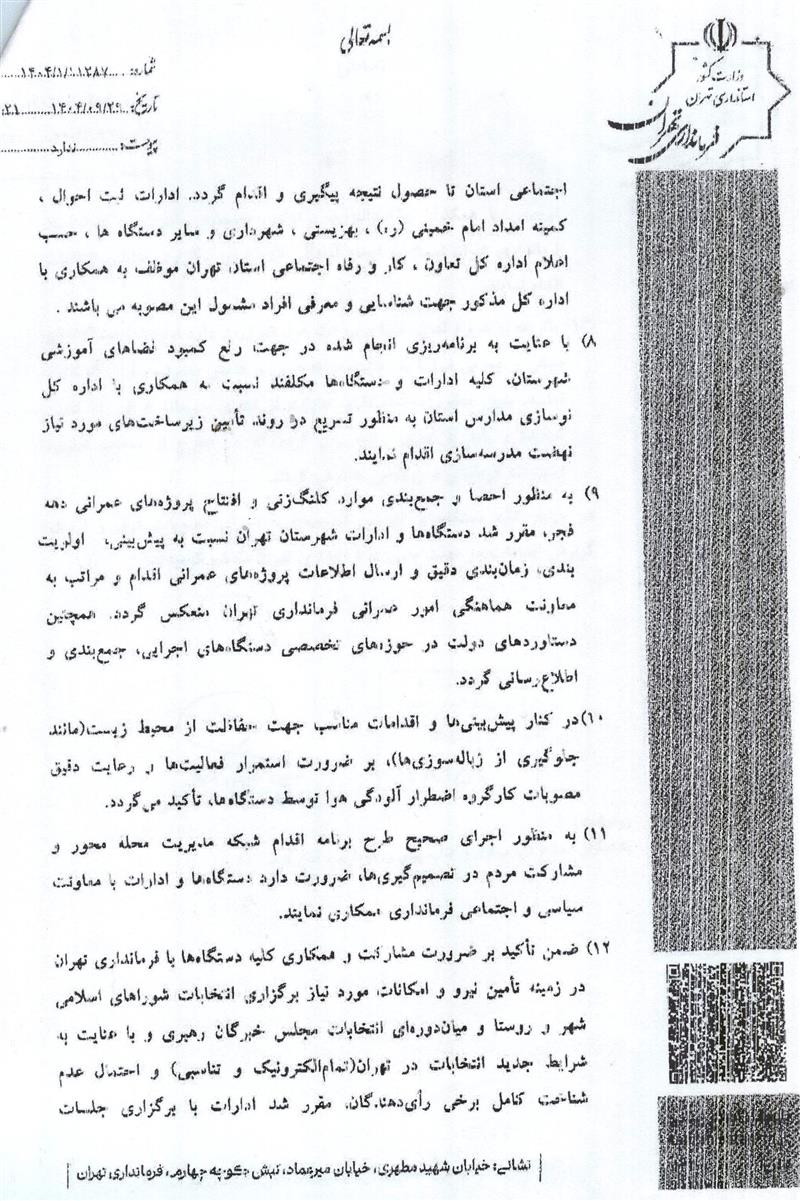 بسمه تعالی
وزارت کشور
استانداری تهران
فرمانداری تهران
شماره: ۱۴۰۴/۱/۱۱۲۸۷
تاریخ: ۱۴۰۴/۰۹/۲۹ ۲۱
پیوست: ندارد
اجتماعی استان تا حصول نتیجه پیگیری و اقدام گردد. ادارات ثبت احوال ،
کمیته امداد امام خمینی (ره) ، بهزیستی ، شهرداری و سایر دستگاه ها ، حسب
اعلام اداره کل تعاون ، کار و رفاه اجتماعی استان تهران موظف به همکاری با
اداره کل مذکور جهت شناسایی و معرفی افراد مشمول این مصوبه می باشند .
۸) با عنایت به برنامه‌ریزی انجام شده در جهت رفع کمبود فضاهای آموزشی
شهرستان، کلیه ادارات و دستگاه‌ها مکلفند نسبت به همکاری با اداره کل
نوسازی مدارس استان به منظور تسریع در روند تأمین زیرساخت‌های مورد نیاز
نهضت مدرسه‌سازی اقدام نمایند.
۹) به منظور احصا و جمع‌بندی موارد کلنگ‌زنی و افتتاح پروژه‌های عمرانی دهه
فجر، مقرر شد دستگاه‌ها و ادارات شهرستان تهران نسبت به پیش‌بینی، اولویت
بندی، زمان‌بندی دقیق و ارسال اطلاعات پروژه‌های عمرانی اقدام و مراتب به
معاونت هماهنگی امور عمرانی فرمانداری تهران منعکس گردد. همچنین
دستاوردهای دولت در حوزه‌های تخصصی دستگاه‌های اجرایی، جمع‌بندی و
اطلاع‌رسانی گردد.
۱۰)در کنار پیش‌بینی‌ها و اقدامات مناسب جهت حفاظت از محیط زیست(مانند
جلوگیری از زباله‌سوزی‌ها)، بر ضرورت استمرار فعالیت‌ها و رعایت دقیق
مصوبات کارگروه اضطرار آلودگی هوا توسط دستگاه‌ها، تأکید می‌گردد.
۱۱) به منظور اجرای صحیح طرح برنامه اقدام شبکه مدیریت محله محور و
مشارکت مردم در تصمیم‌گیری‌ها، ضرورت دارد دستگاه‌ها و ادارات با معاونت
سیاسی و اجتماعی فرمانداری همکاری نمایند.
۱۲) ضمن تأکید بر ضرورت مشارکت و همکاری کلیه دستگاه‌ها با فرمانداری تهران
در زمینه تأمین نیرو و امکانات مورد نیاز برگزاری انتخابات شوراهای اسلامی
شهر و روستا و میان‌دوره‌ای انتخابات مجلس خبرگان رهبری و با عنایت به
شرایط جدید انتخابات در تهران(تمام‌الکترونیک و تناسبی) و احتمال عدم
شناخت کامل برخی رأی‌دهندگان، مقرر شد ادارات با برگزاری جلسات
نشانی: خیابان شهید مطهری، خیابان میرعماد، نبش کوچه چهارم، فرمانداری تهران